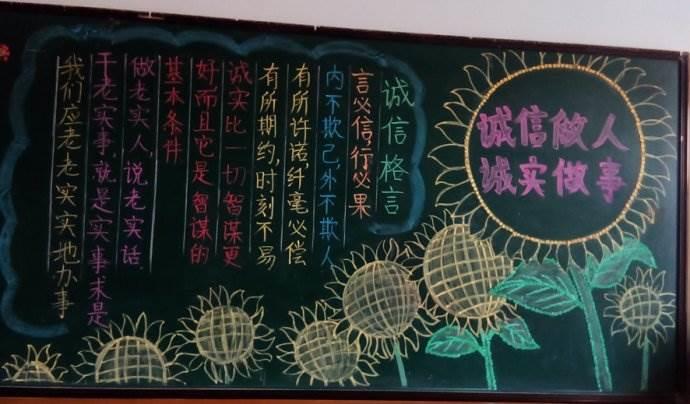 诚信做人
诚实做事
诚信格言
言必信,行必果
内不欺己,外不欺人
有所许诺,纤毫必偿
有所期约,时刻不易
诚实比一切智谋更
好而且它是智谋的
基本条件
做老实人,说老实话.
干老实事,就是实事求是
我们应老老实实地办事